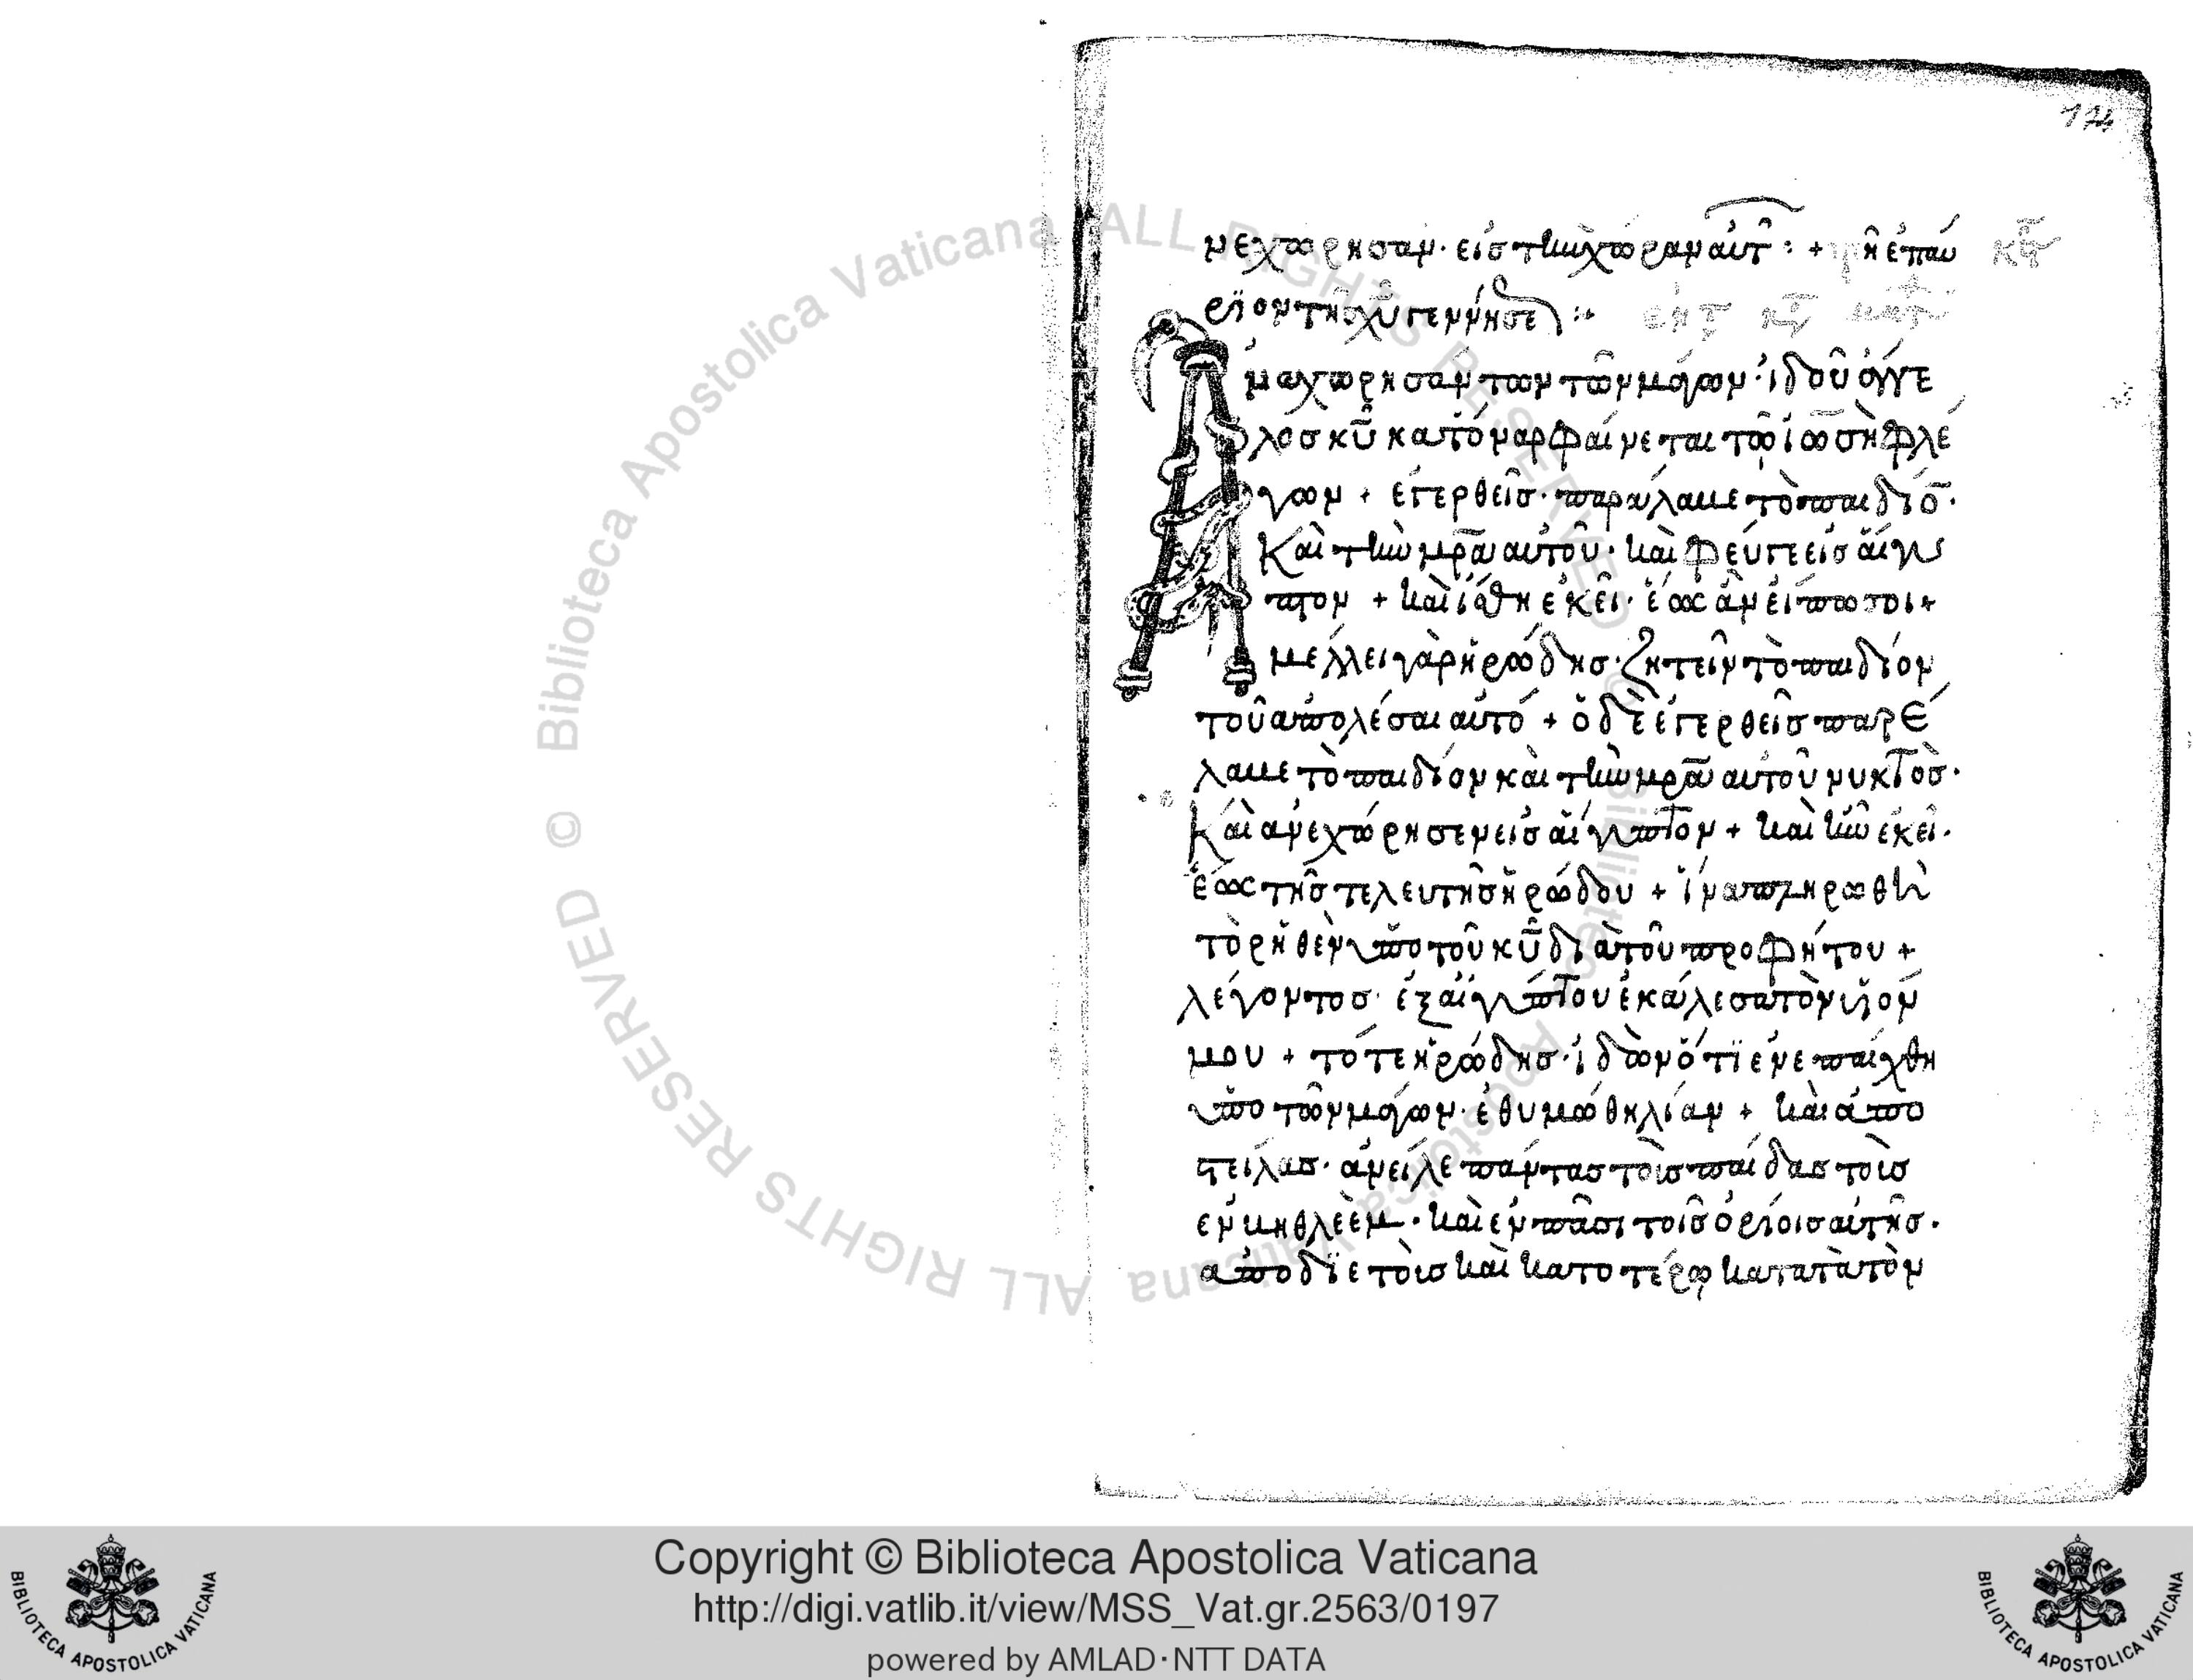 174
νεχώρησαν· εἰς τὴν χώραν αὐτ : + τῇ ἐπαύ
ριον τῆς χυ γεννήσε :·
ναχωρησάντων τῶν μάγων· ἰδοῦ ἄγγε
λος κυ κατόναρ φαίνεται τῶ ἰωσὴφ λέ
γων + ἐγερθεὶς· παράλαβε τὸ παιδίο·
Καὶ τὴν μρα αὐτοῦ· καὶ φεύγε εἰς ἄιγυ
πτον + καὶ ἴσθη ἐκεῖ· ἕως ἂν εἴπω σοι +
μέλλει γὰρ ἡρώδης· ζητεῖν τὸ παιδίον
τοῦ ἀπολέσαι αὐτό + ὁ δὲ ἐγερθεὶς παρέ
λαβε τὸ παιδίον καὶ τὴν μρα αὐτοῦ νυκτὸς·
Καὶ ἀνεχώρησεν εἰς αἴγυπτον + καὶ ἦν ἐκεῖ·
ἕως τῆς τελευτῆς ἡρώδου + ἵνα πληρωθῆ
τὸ ρηθὲν ὑπὸ τοῦ κυ διὰ τοῦ προφήτου +
λέγοντος· ἐξ αἰγύπτου ἐκάλεσα τὸν υἱόν
μου + τότε ἡρώδης· ἰδὼν ὅτι ἐνεπαίχθη
ὑπὸ τῶν μάγων· ἐθυμώθη λίαν + καὶ ἀπο
στείλας· ἀνείλε πάντας τοὺς παίδας τοὺς
ἐν βηθλεὲμ· καὶ ἐν πᾶσι τοῖς ὁρίοις αὐτῆς·
ἀπὸ διετοὺς καὶ κατοτέρω κατατὰ τὸν
Copyright © Biblioteca Apostolica Vaticana
http://digi.vatlib.it/view/MSS_Vat.gr.2563/0197
powered by AMLAD·NTT DATA
BIBLIOTECA APOSTOLICA VATICANA
BIBLIOTECA APOSTOLICA VATICANA
© Biblioteca Apostolica Vaticana ALL RIGHTS RESERVED
© Biblioteca Apostolica Vaticana ALL RIGHTS RESERVED